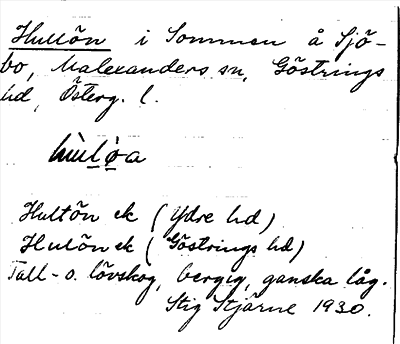 Hulön i Sommen å Sjö-
bo, Malexanders sn, Göstrings
hd, Österg. l.
hùlo̠a
Hultön ek (Ydre hd)
Hulön ek (Göstrings hd)
Tall- o. lövskog, bergig, ganska låg.
Stig Stjärne 1930.